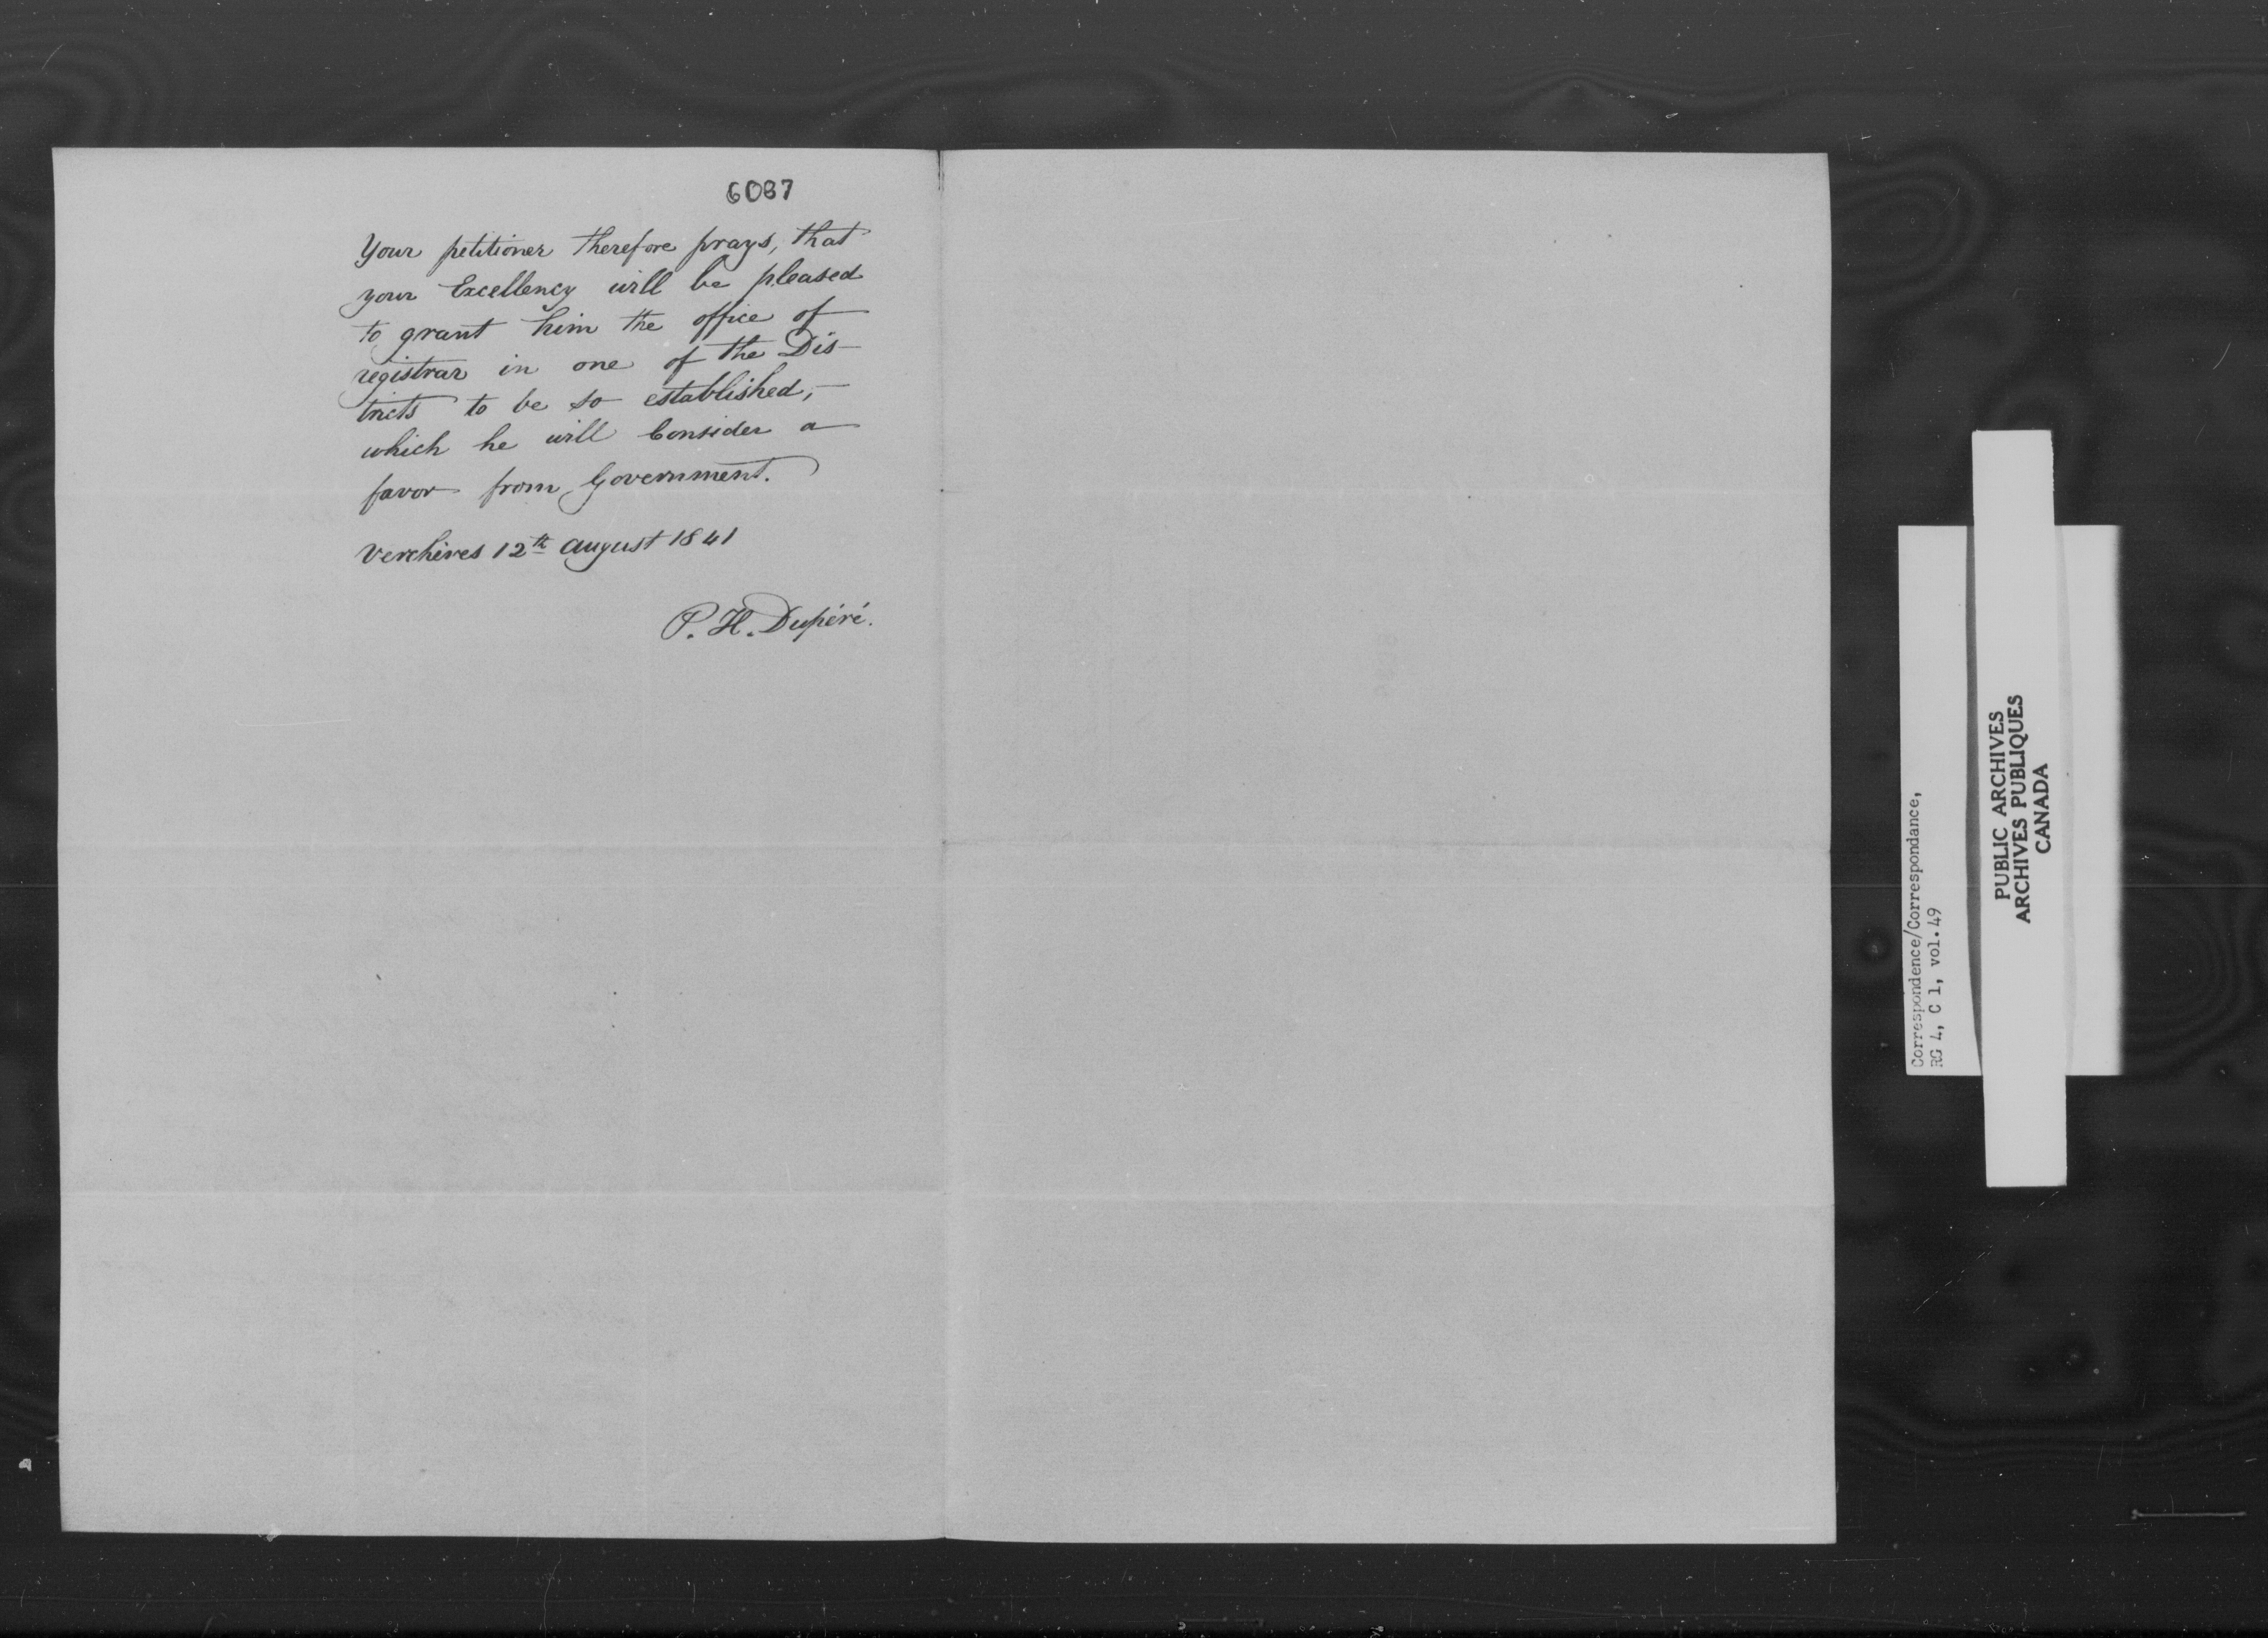 6087
Your petitioner therefore prays, that
your Excellency will be pleased
to grant him the office of
registrar in one of the Dis-
tricts to be so established,
which he will Consider a
favor from Government.
Verchères 12th august 1841
P. H. Dupéré.
Correspondence/Correspondance,
RG 4, C 1, vol. 49
PUBLIC ARCHIVES
ARCHIVES PUBLIQUES
CANADA